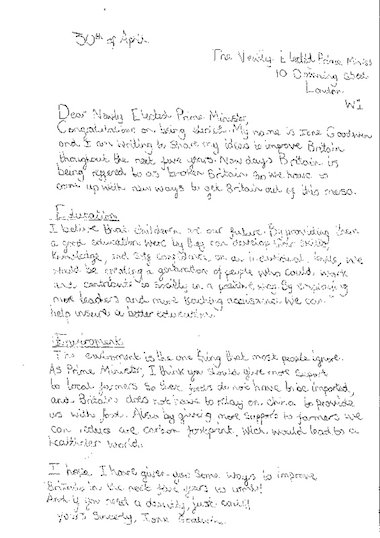 30th of April
The Newly Elected Prime Minister
10 Downing Street
London
W1
Dear Newly Elected Prime Minister,
Congratulations on being elected. My name is Ione Goodwin
and I am writing to share my ideas to improve Britain
throughout the next five years. Now days Britain is
being reffered to as "broken Britain" so we have to
come up with new ways to get Britain out of this mess.
Education
I believe that children are our future. By providing them
a good education were by they can develop their skills,
knowledge, and self confidence on an individual basis, we
should be creating a generation of people who could work
and contribute to society in a positive way. By employing
more leaders and more teaching assistance we can
help insure a better education.
Enviroment
The enviroment is the one thing that most people ignore.
As Prime Minister, I think you should give more support
to local farmers so that foods do not have to be imported,
and Britain does not have to relay on china to provide
us with food. Also by giveing more support to farmers we
can reduce are carbon footprint, wich would lead to a
healthier world.
I hope I have given you some ways to improve
Britain in the next five years to come!
And if you need a deputy, just call!
yours sincerly, Ione Goodwin